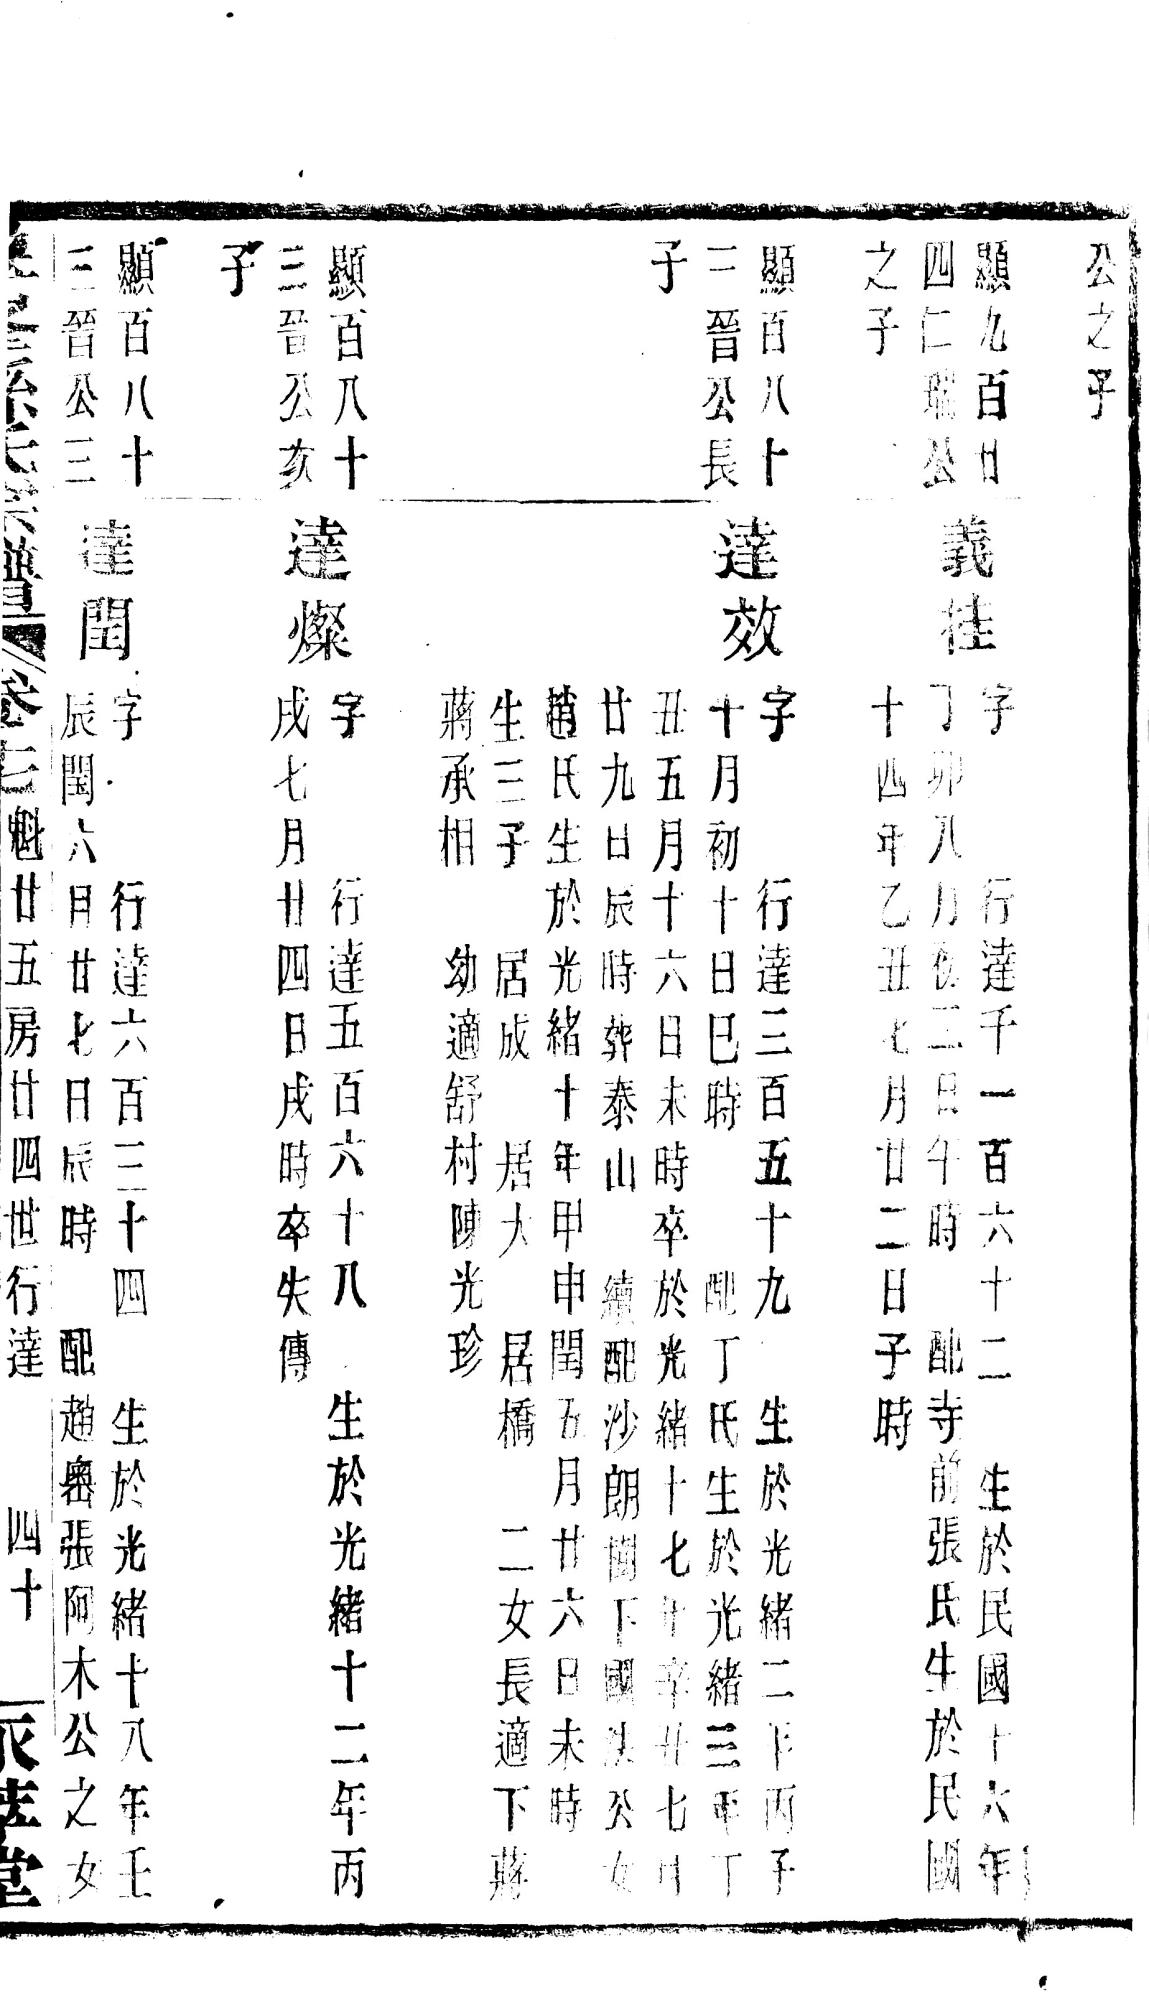 公之子
顯九百廿
四仁瑞公
之子
義桂
字　行達千一百六十二　生於民國十六年
丁卯八月初二日午時　配寺前張氏生於民國
十四年乙丑七月廿二日子時
顯百八十
一晉公長
子
達效
字　行達三百五十九　生於光緒二年丙子
十月初十日巳時　配丁氏生於光緒三年丁
丑五月十六日未時卒於光緒十七年辛卯七月
廿九日辰時葬泰山　續配沙朗下國法公女
趙氏生於光緒十年甲申閏五月廿六日未時
生三子　居成　居大　居橋　二女長適下蔣
蔣承相　幼適舒村陳光珍
顯百八十
三晉公亥
子
達燦
字　行達五百六十八　生於光緒十二年丙
戌七月廿四日戌時卒失傳
顯百八十
三晉公三
達閏
字　行達六百三十四　生於光緒十八年壬
辰閏六月廿七日辰時　配趙嶴張阿木公之女
孫氏宗譜　卷七　魁廿五房廿四世行達　四十　萃堂